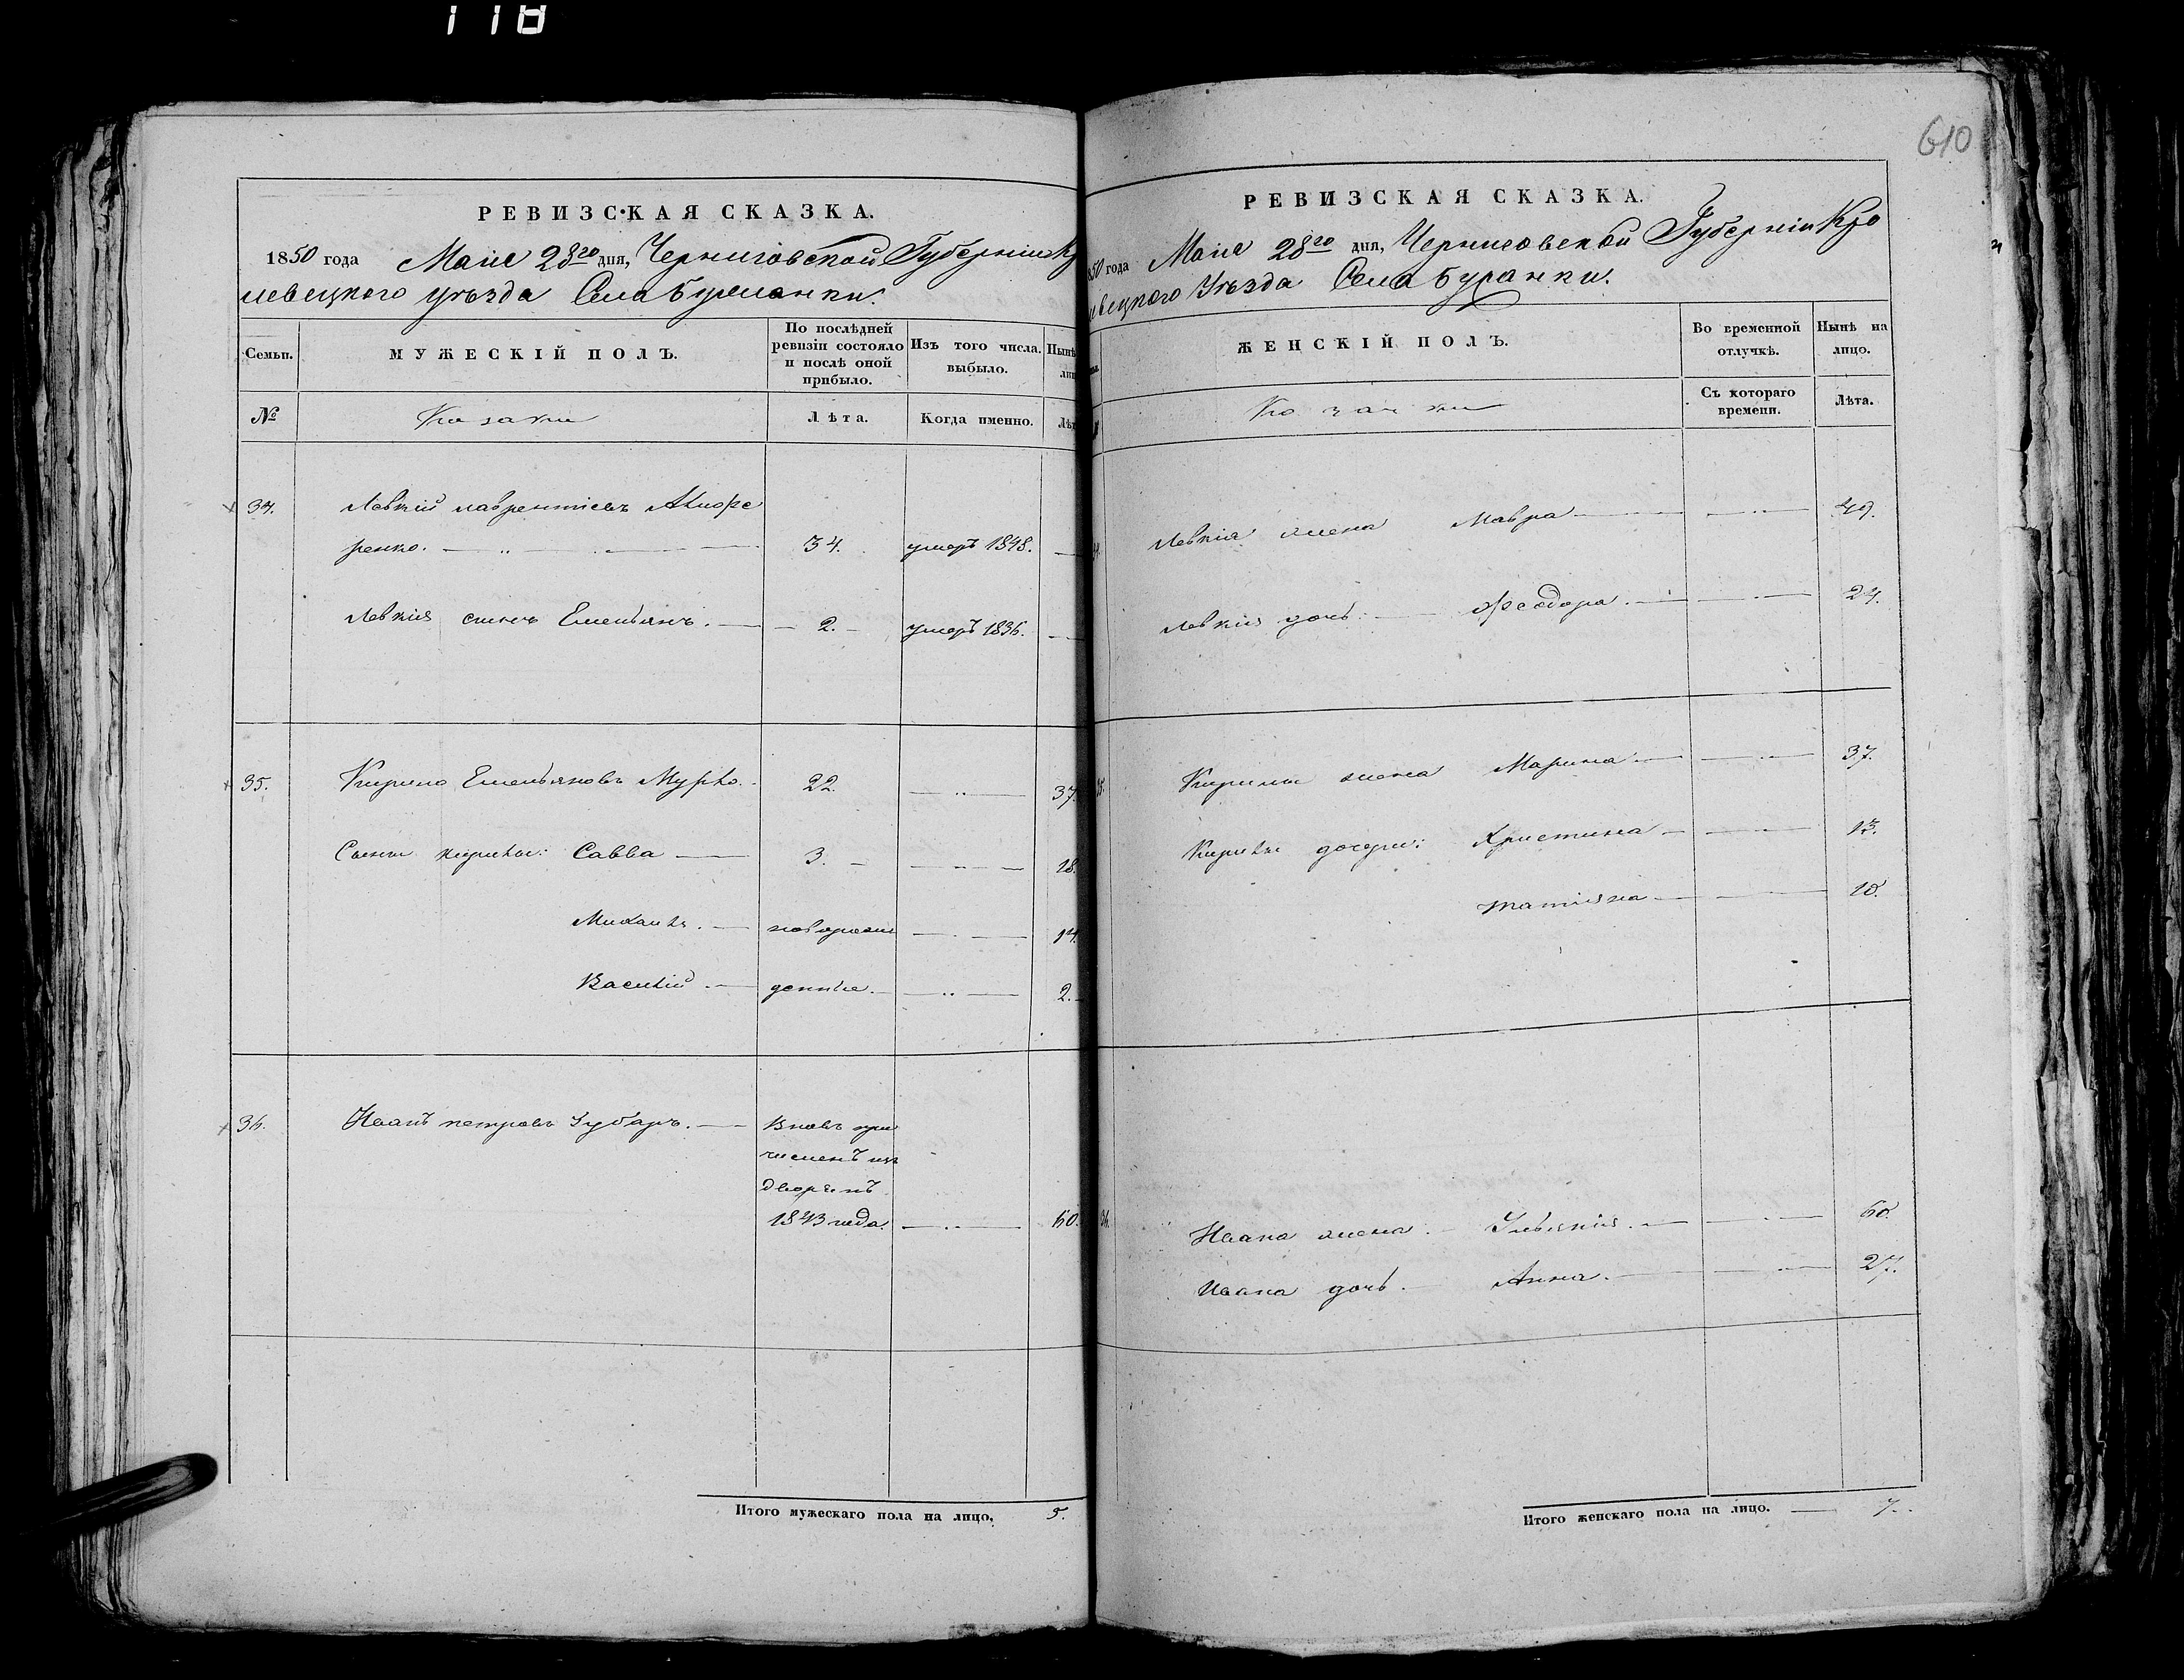 118
РЕВИЗСКАЯ СКАЗКА.
1850 года Маія 28го дня, Черниговской Губерніи Кро
левецкого уѣзда Села Буранки.
Семьи.
МУЖЕСКІЙ ПОЛЪ.
По послѣдней ревизіи состояло и послѣ оной прибыло.
Изъ того числа выбыло.
Нынѣ
№
Казаки
Лѣта.
Когда именно.
Лѣт
34. Левкій лаврентіевъ
ренко. 34. умеръ 1848.
Левкія сынъ Емельянъ. 2. умеръ 1836.
35. Кирило Емельяновъ Мурко. 22. 37.
Сыны кирилы: Савва 3. 18.
Михаилъ. новорож 14.
Василій денные. 2.
36. Иванъ петровъ Зубаръ. Вновь при
численъ изъ
дворянъ
1843 года. 60.
Итого мужескаго пола на лицо. 5.
610
РЕВИЗСКАЯ СКАЗКА.
1850 года Маія 28го дня, Черниговской Губерніи Кро
левецкого Уѣзда Села Буранки.
ЖЕНСКІЙ ПОЛЪ.
Во временной отлучкѣ.
Нынѣ на лицо.
Козачки
Съ котораго времени.
Лѣта.
Левкія жена Мавра 49.
Левкія дочь Феодора. 24.
35. Кирилы жена Марина 37.
Кирилы дочери: Христина 13.
татіяна 10.
36. Ивана жена Ульянія. 60.
Ивана дочь. Анна. 27.
Итого женскаго пола на лицо. 7.